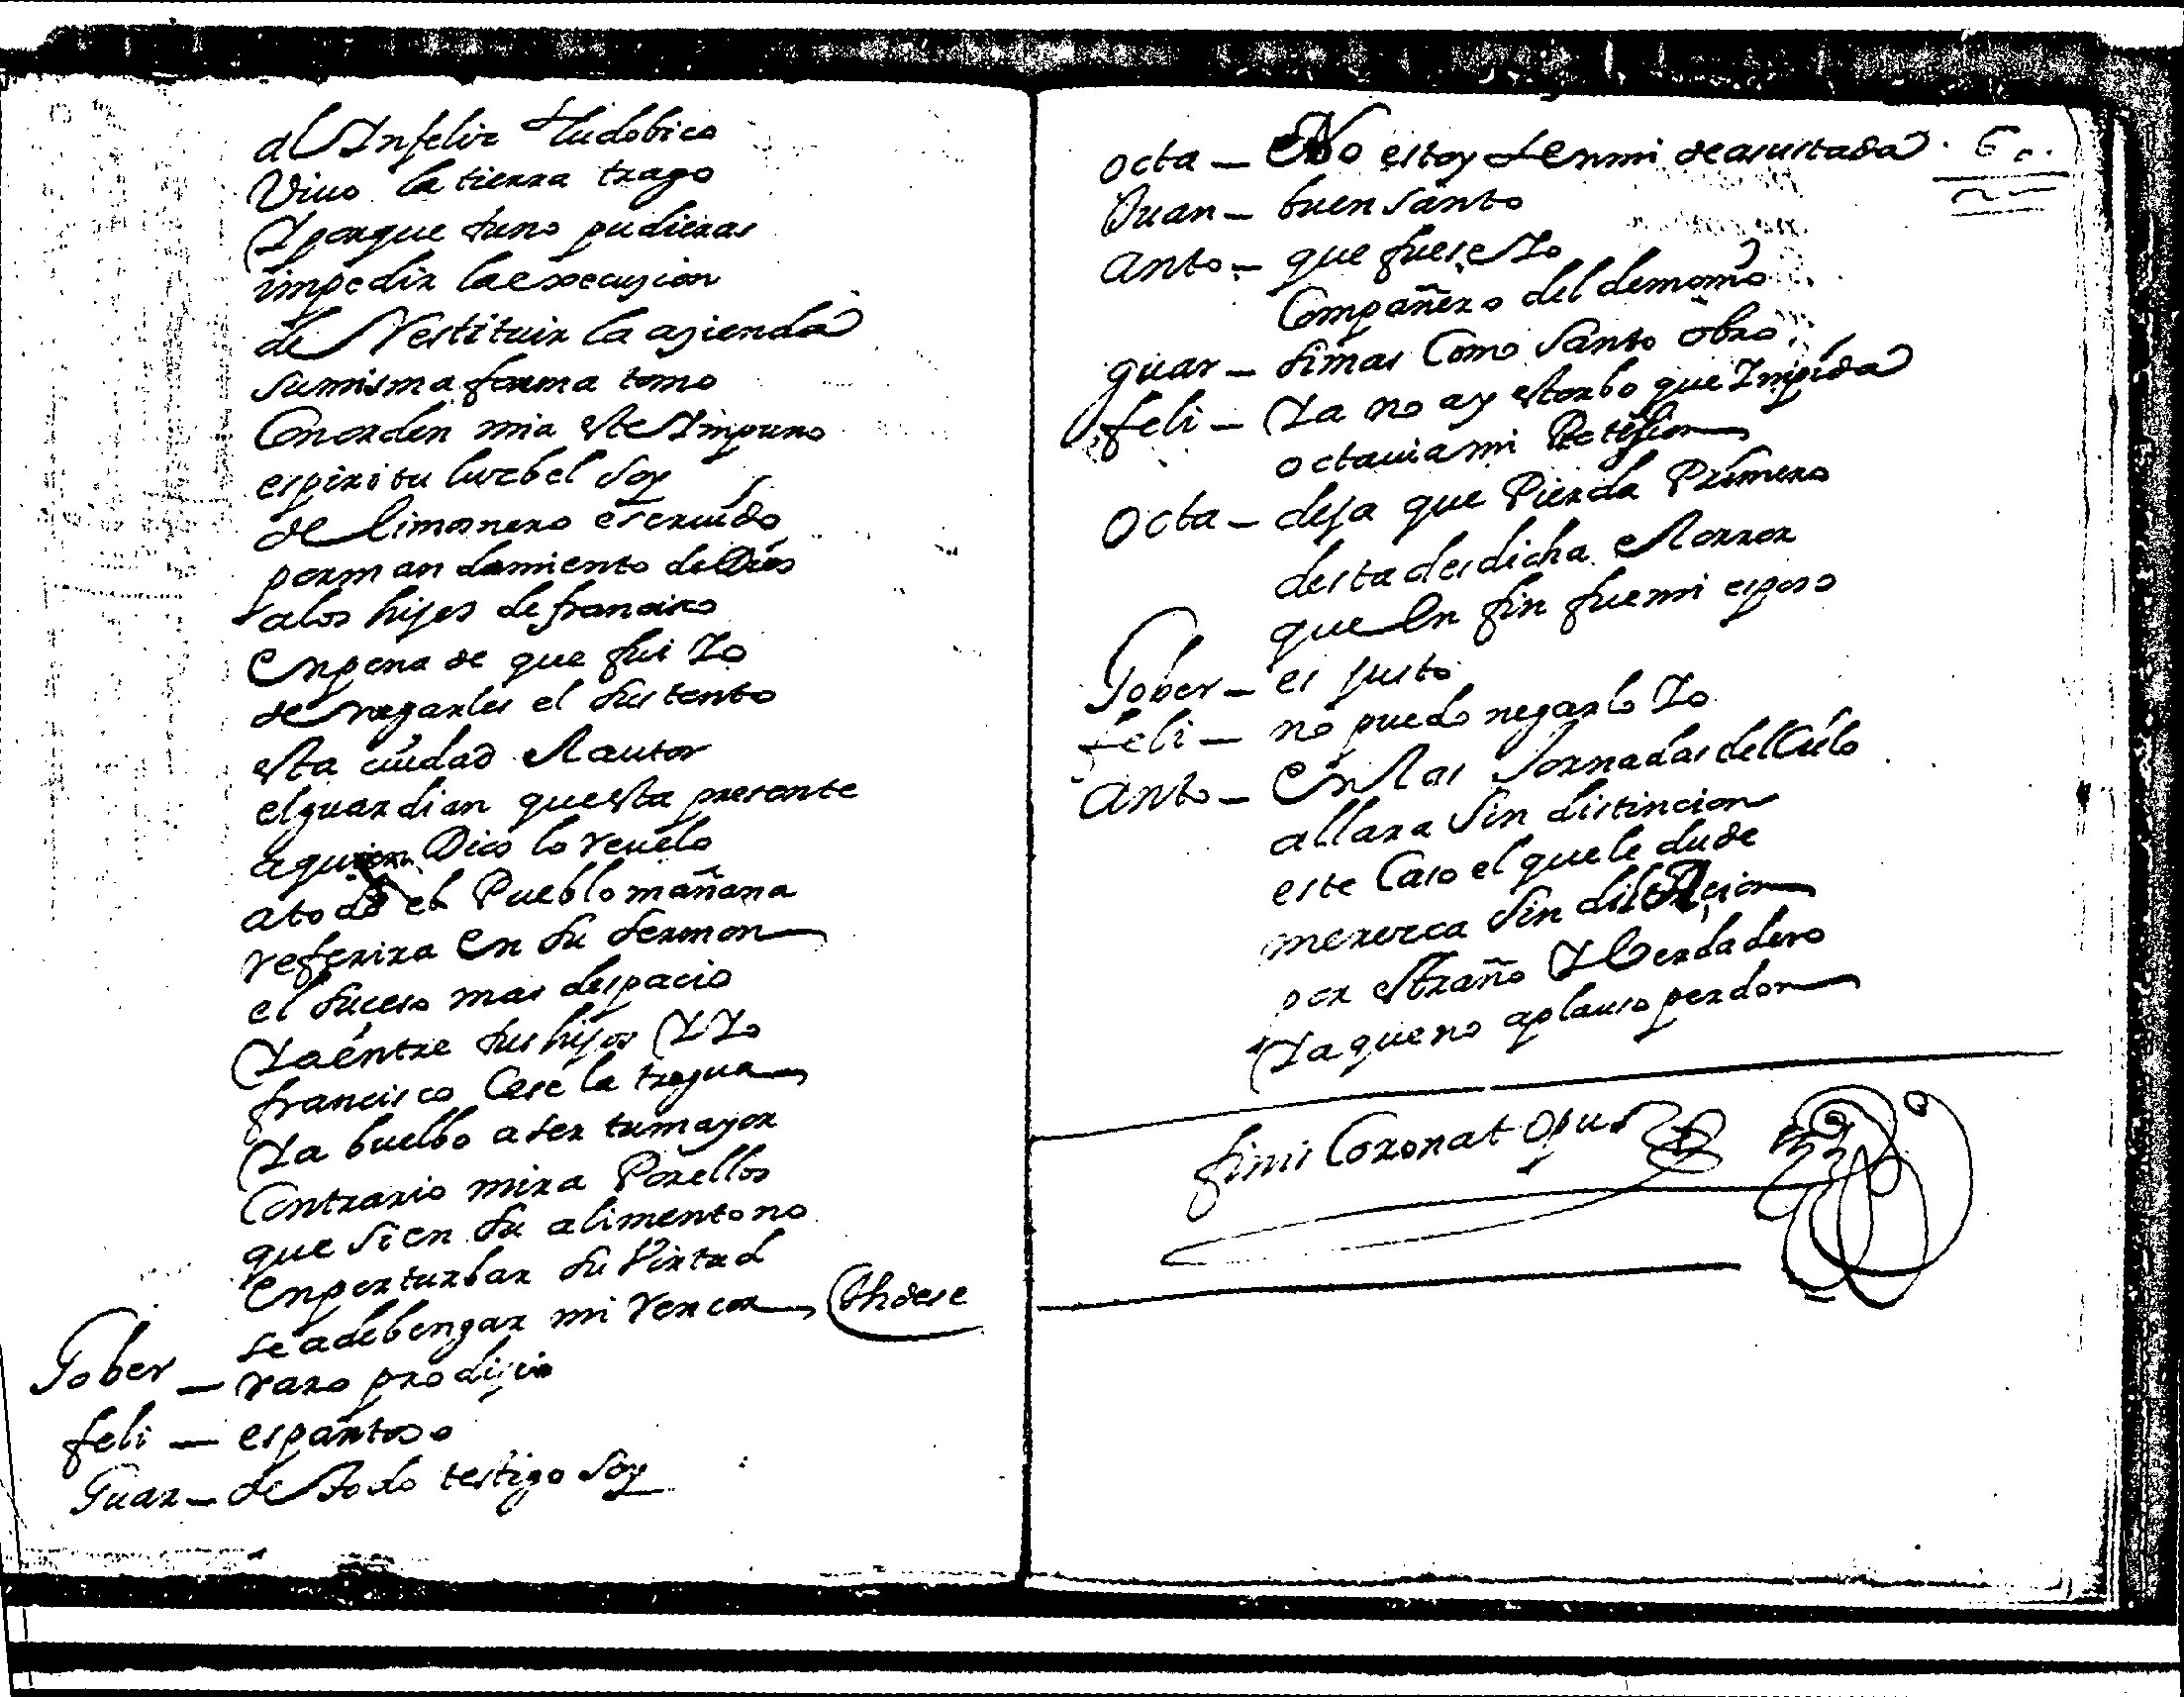 al Infeliz Ludobico
Viuo la tierra trago
Y porque tu no pudieras
impedir la execuzion
de Restituir la azienda
su misma forma tomo
Con orden mia este Impuro
espiritu luzbel soy
de limosnero e seruido
por mandamiento de Dios
a los hijos de francisco
En pena de que fui Yo
de negarles el sustento
esta ciudad el autor
el guardian que esta presente
a quien Dios lo reuelo
a todo el Pueblo mañana
referira En su sermon
el suceso mas despacio
Ya entre tus hijos Y Yo
francisco Cese la tregua
Ya buelbo a ser tu mayor
Contrario mira Por ellos
que si en su alimento no
En perturbar su Virtud
se a de bengar mi rencor Undese
Gober — raro prodijio
feli — espantoso
Guar — de todo testigo soy
octa — No estoy En mi de asustada 60.
Juan — buen santo
Anto — que fuese Yo
Compañero del demonio
guar — simas Como santo obro
feli — Ya no ay estorbo que Impida
octauia mi Petision
Octa — deja que Pierda Primero
desta desdicha el orror
que En fin fue mi esposo
Gober — es justo
feli — no puedo negarlo Yo
Anto — En las Jornadas del Cielo
allara sin distincion
este Caso el que le dude
merezca sin
por estraño Y Verdadero
Ya que no aplauso perdon
finis Coronat opus